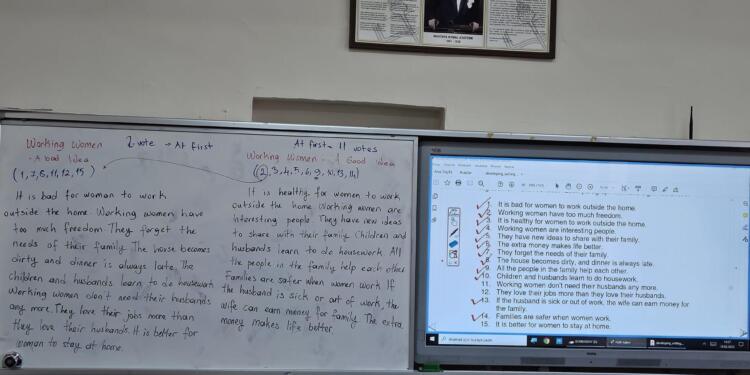 Working Women
- A bad Idea
2 vote → At first
(1, 7, 8, 11, 12, 15)
It is bad for woman to work
outside the home. Working women have
too much freedom. They forget the
needs of their family. The house becomes
dirty and dinner is always late. The
children and husbands learn to do housework
Working women don't need their husbands
any more. They love their jobs more than
they love their husbands. It is better for
woman to stay at home.
At first - 11 votes
Working Women - A Good idea
(2, 3, 4, 5, 6, 9, 10, 13, 14)
It is healthy for women to work
outside the home. Working women are
interesting people. They have new ideas
to share with their family. Children and
husbands learn to do housework. All
the people in the family help each other
Families are safer when women work. If
the husband is sick or out of work, the
wife can earn money for family. The extra
money makes life better.
1. It is bad for women to work outside the home.
2. Working women have too much freedom.
3. It is healthy for women to work outside the home.
4. Working women are interesting people.
5. They have new ideas to share with their family.
6. The extra money makes life better.
7. They forget the needs of their family.
8. The house becomes dirty, and dinner is always late.
9. All the people in the family help each other.
10. Children and husbands learn to do housework.
11. Working women don't need their husbands any more.
12. They love their jobs more than they love their husbands.
13. If the husband is sick or out of work, the wife can earn money for
the family.
14. Families are safer when women work.
15. It is better for women to stay at home.